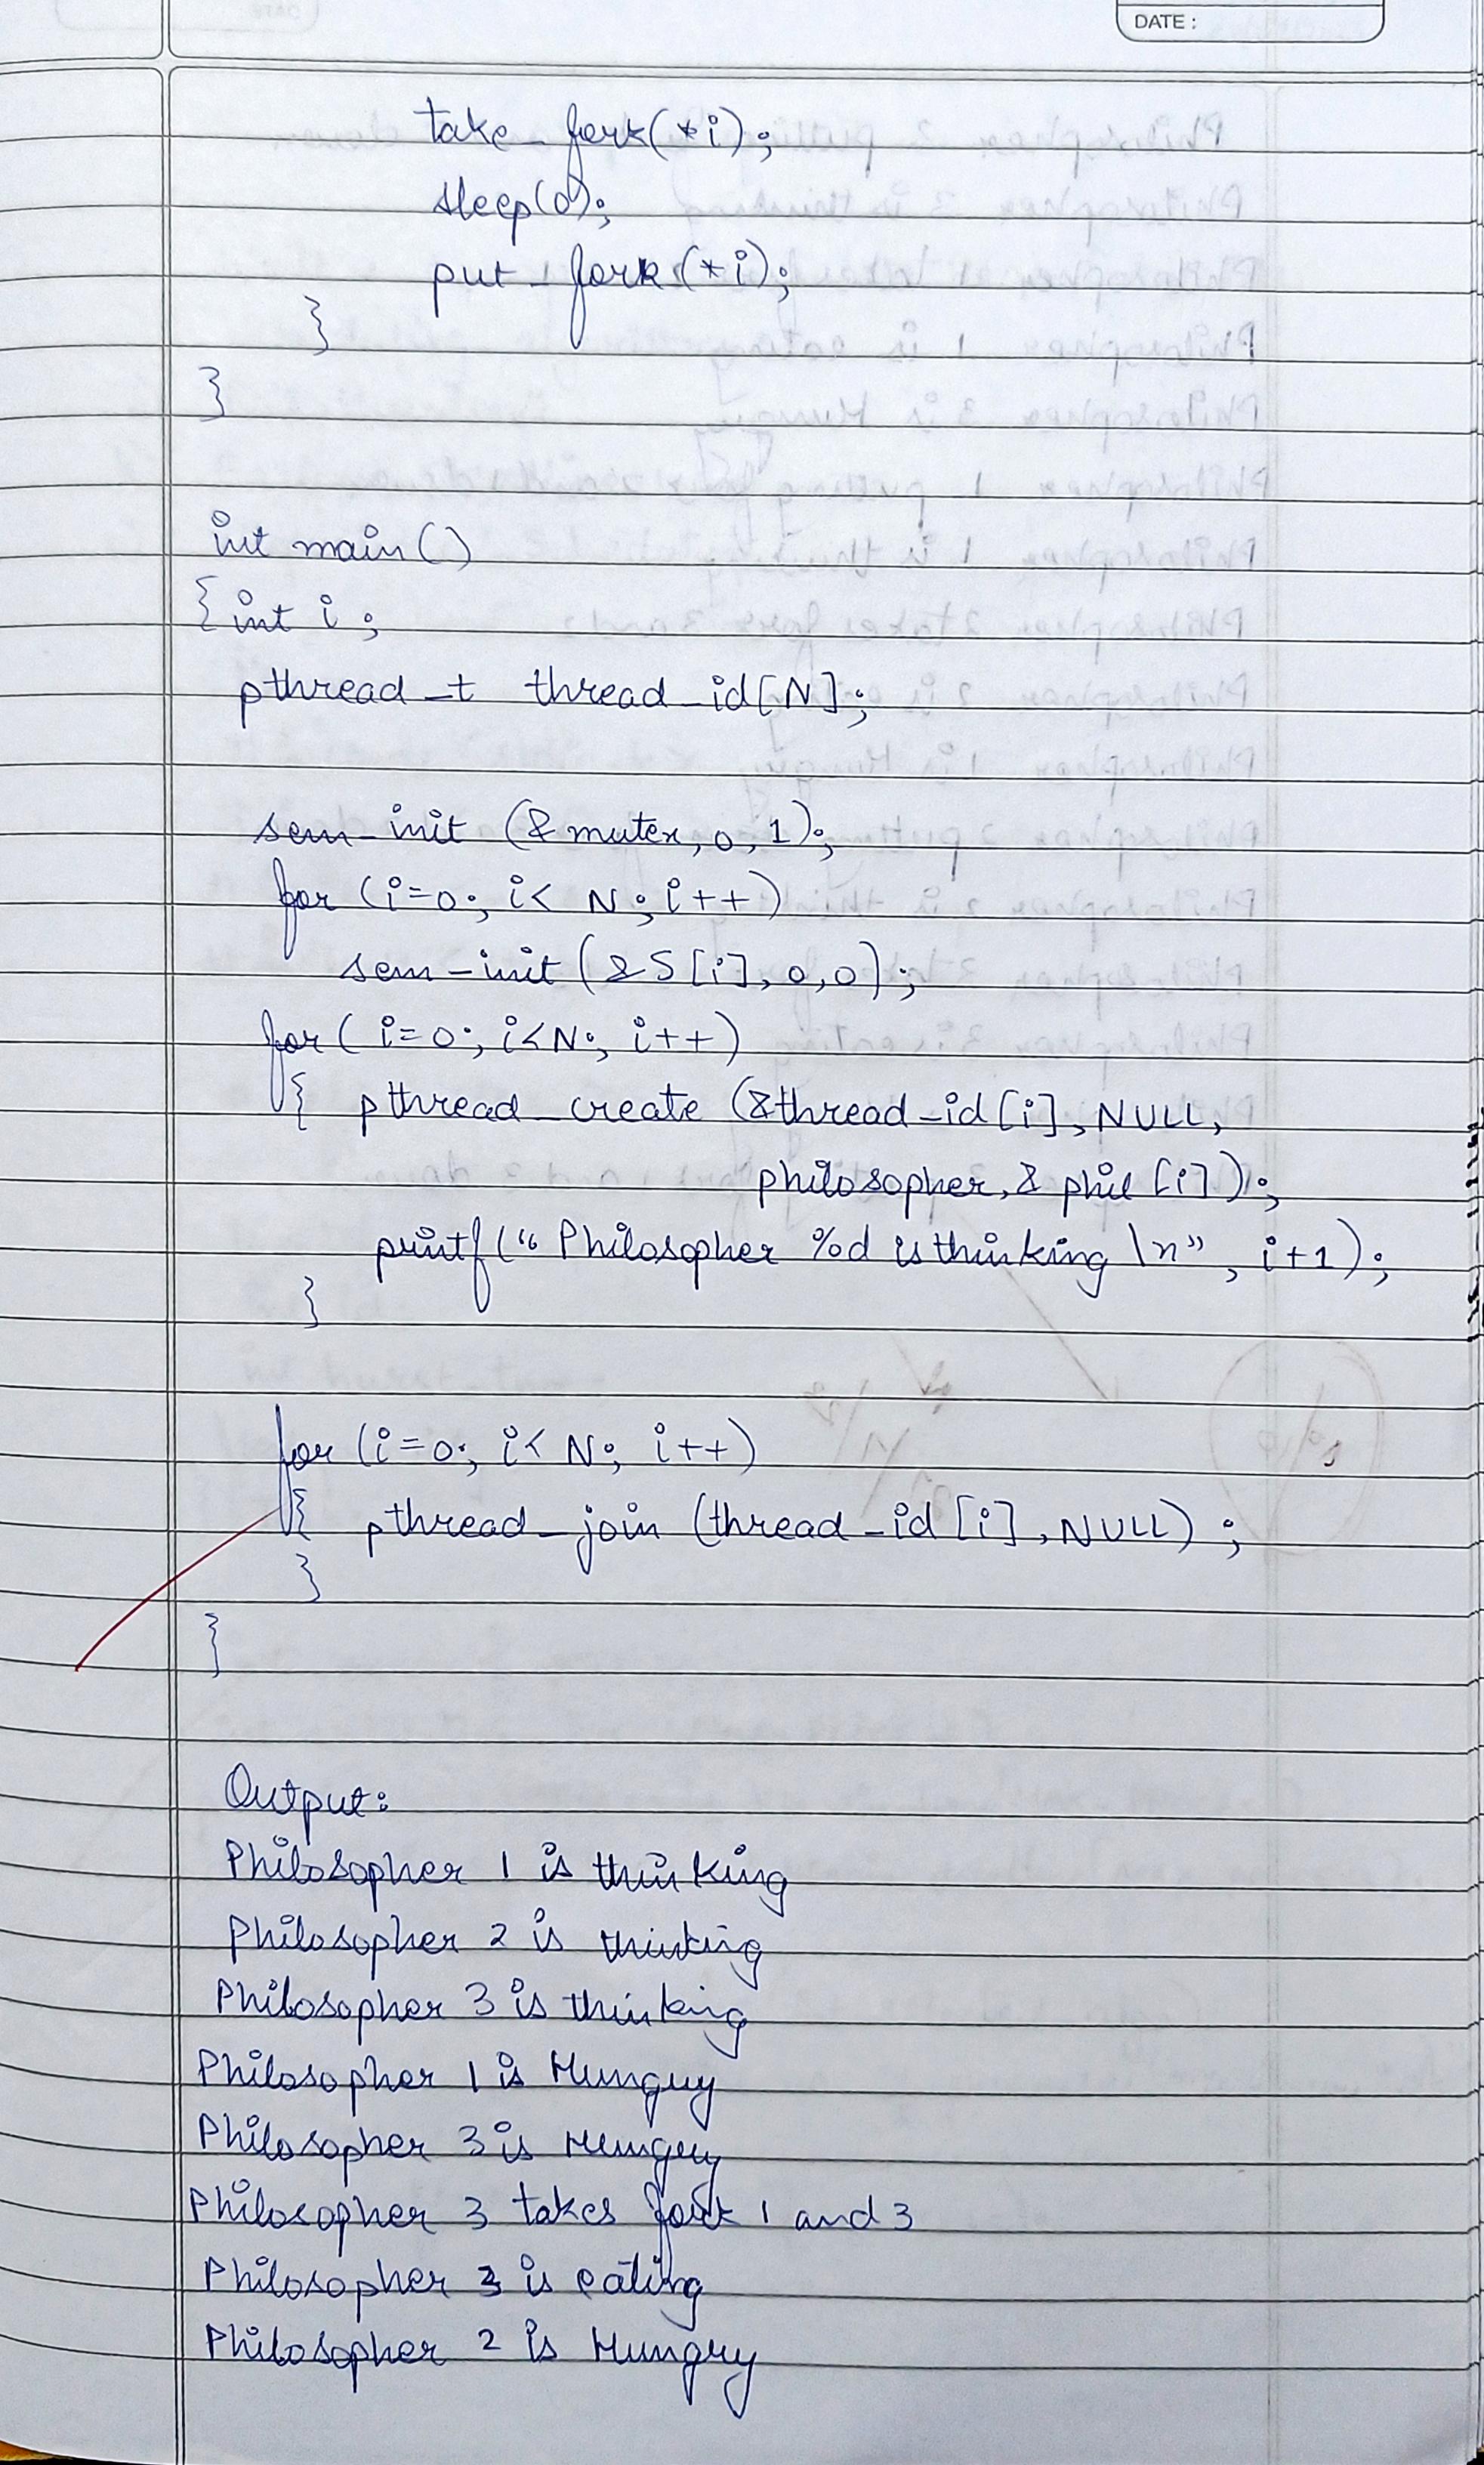 DATE :
take_fork(*i);
sleep(0);
put_fork(*i);
}
}
int main()
{ int i;
pthread_t thread_id[N];
sem_init (&mutex, 0, 1);
for (i=0; i< N; i++)
sem_init (&S[i], 0, 0);
for ( i=0; i<N; i++)
{ pthread_create (&thread_id[i], NULL,
philosopher, & phil [i]);
printf("Philosopher %d is thinking \n", i+1);
}
for (i=0; i< N; i++)
{ pthread_join (thread_id [i], NULL);
}
}
Output:
Philosopher 1 is thinking
Philosopher 2 is thinking
Philosopher 3 is thinking
Philosopher 1 is Hungry
Philosopher 3 is Hungry
Philosopher 3 takes fork 1 and 3
Philosopher 3 is eating
Philosopher 2 is Hungry